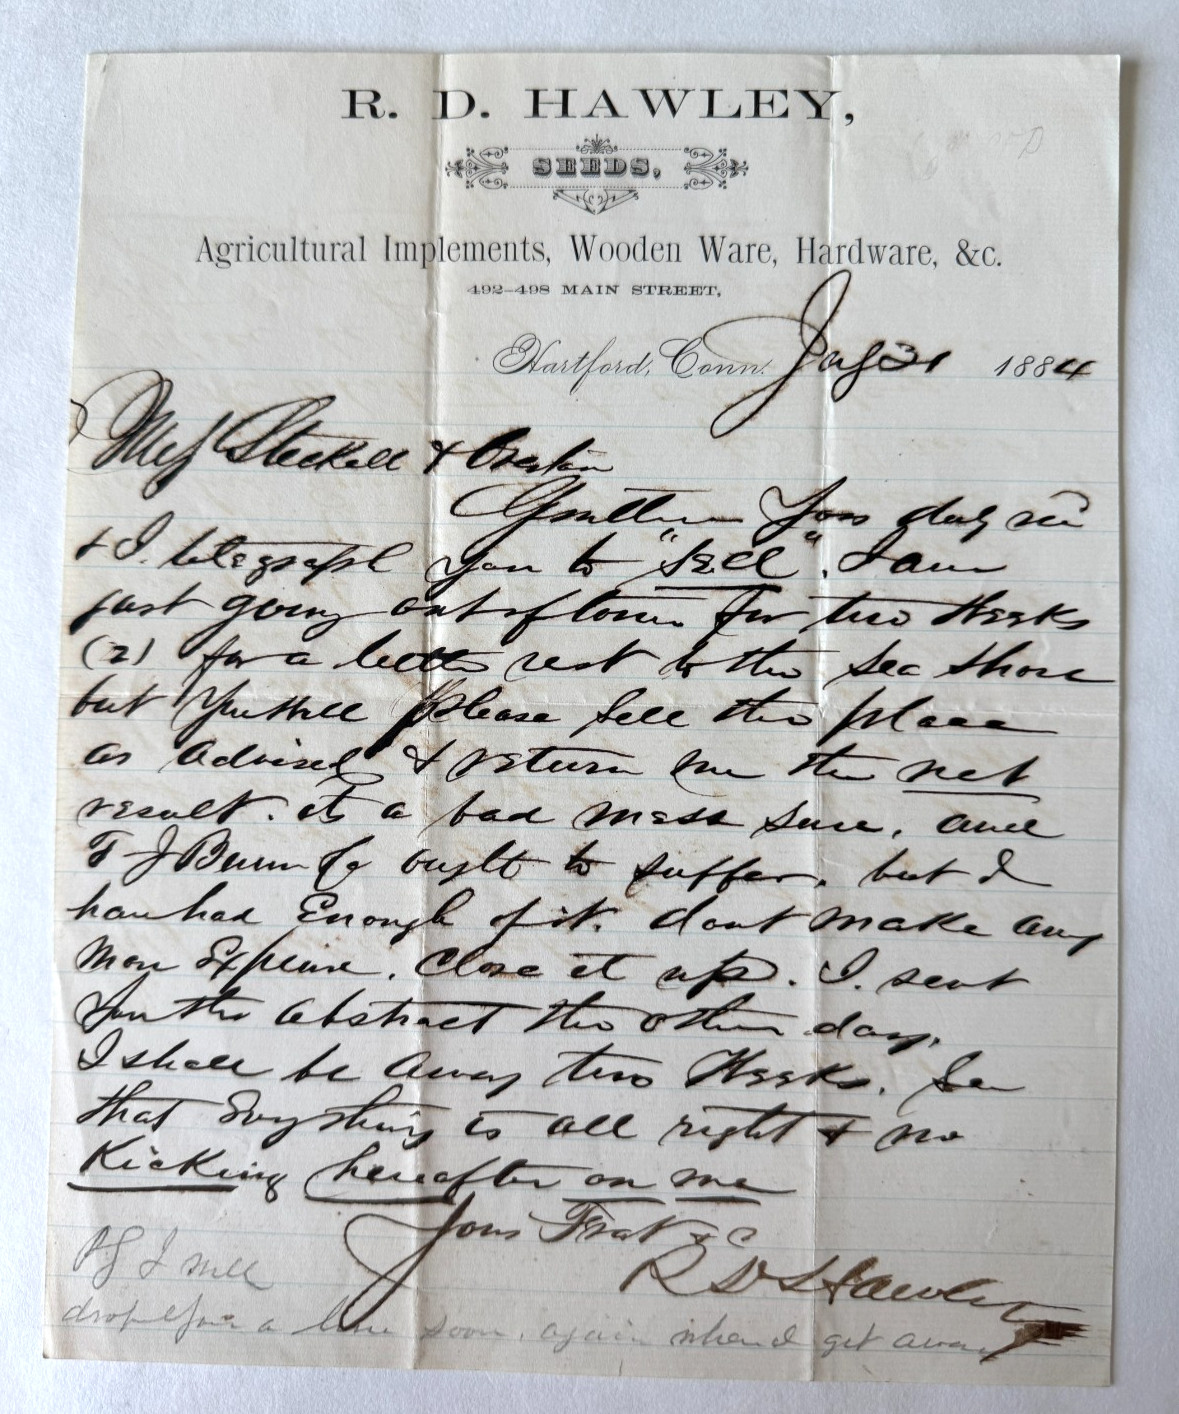 R. D. HAWLEY,
SEEDS,
Agricultural Implements, Wooden Ware, Hardware, &c.
492-498 MAIN STREET,
Hartford, Conn. 31 1884
Mess &
Yours duly
& I telegraph you to "Sell". I am
just going out of town for two Weeks
(2) for a little rest to the Sea Shore
but You Will please Sell the place
as advised & return me the net
result. its a bad mess sure. and
T J Bunn Co ought to suffer. but I
have had Enough of it. dont make any
more Expense. Close it up. I. sent
You the abstract the other day.
I shall be away two Weeks. See
that Evything is all right & no
Kicking hereafter on me
Yours Frat &c
R D Hawley
PS I will
drop you a line soon. again when I get away